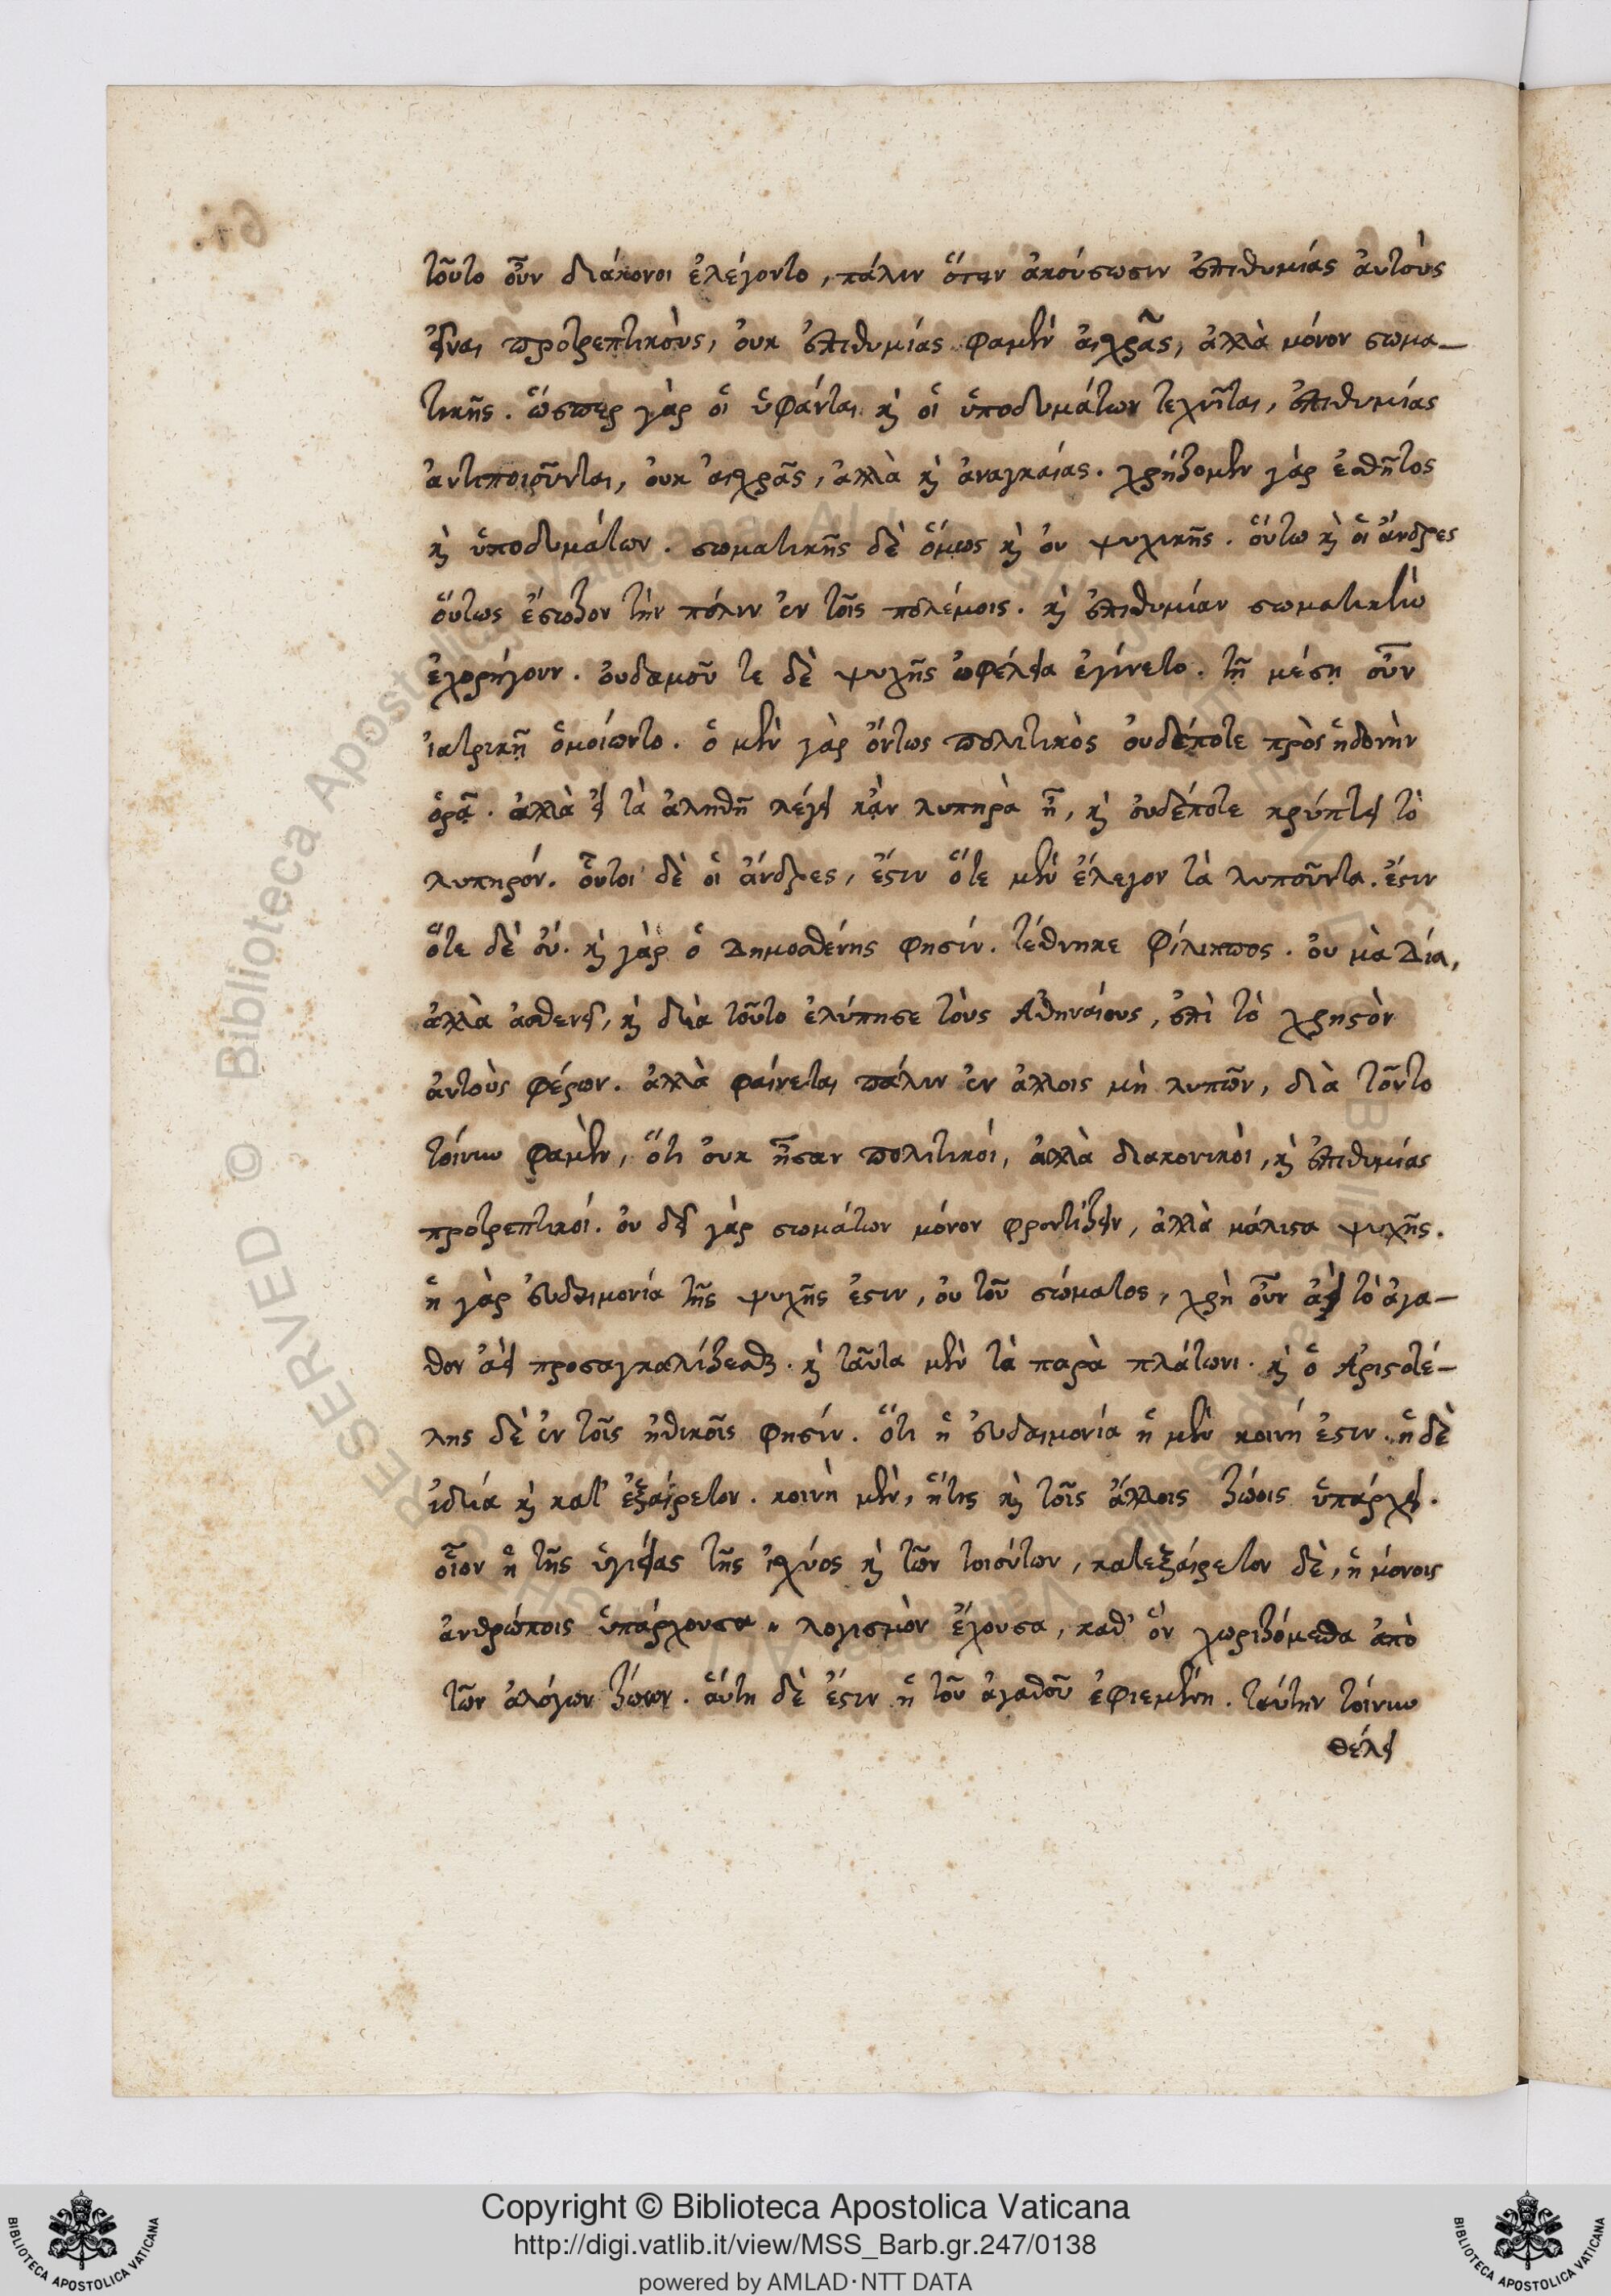 τοῦτο οὖν διάκονοι ἐλέγοντο, πάλιν ὅταν ἀκούσωσιν ἐπιθυμίας ἀυτοὺς
εἶναι προτρεπτικοὺς, ὀυκ ἐπιθυμίας φαμὲν ἀισχρᾶς, ἀλλὰ μόνον σωμα-
τικῆς. ὥσπερ γὰρ ὁι ὑφάνται καὶ ὁι ὑποδυμάτων τεχνῖται, ἐπιθυμίας
ἀντιποιοῦνται, ὀυκ ἀισχρᾶς, ἀλλὰ καὶ ἀναγκαίας. χρήζομεν γὰρ ἐσθῆτος
καὶ ὑποδυμάτων. σωματικῆς δὲ ὅμως καὶ ὀυ ψυχικῆς. ὅυτω καὶ ὁι ἄνδρες
ὅυτως ἔσωζον τὴν πόλιν ἐν τοῖς πολέμοις. καὶ ἐπιθυμίαν σωματικὴν
ἐχορήγουν. ὀυδαμοῦ τε δὲ ψυχῆς ὠφέλεια ἐγίνετο. τῇ μέσῃ οὖν
ἰατρικῇ ὁμοίωντο. ὁ μὲν γὰρ ὄντως πολιτικὸς ὀυδέποτε πρὸς ἡδονὴν
ὁρᾷ. ἀλλὰ εἰ τὰ ἀληθῆ λέγει κἂν λυπηρὰ ᾖ, καὶ ὀυδέποτε κρύπτει τὸ
λυπηρόν. οὗτοι δὲ ὁι ἄνδρες, ἔστιν ὅτε μὲν ἔλεγον τὰ λυποῦντα. ἔστιν
ὅτε δὲ ὀύ. καὶ γὰρ ὁ Δημοσθένης φησίν. τέθνηκε Φίλιππος. ὀυ μὰ Δία,
ἀλλὰ ἀσθενεῖ, καὶ διὰ τοῦτο ἐλύπησε τοὺς Ἀθηναίους, ἐπὶ τὸ χρηστὸν
ἀυτοὺς φέρων. ἀλλὰ φαίνεται πάλιν ἐν ἄλλοις μὴ λυπῶν, διὰ τοῦτο
τοίνυν φαμὲν, ὅτι ὀυκ ἦσαν πολιτικόι, ἀλλὰ διακονικὸι, καὶ ἐπιθυμίας
προτρεπτικόι. ὀυ δεῖ γὰρ σωμάτων μόνον φροντίζειν, ἀλλὰ μάλιστα ψυχῆς.
ἡ γὰρ ἐυδαιμονία τῆς ψυχῆς ἐστιν, ὀυ τοῦ σώματος, χρὴ οὖν ἀεὶ τὸ ἀγα-
θον ἀεὶ προσαγκαλίζεσθαι. καὶ ταῦτα μὲν τὰ παρὰ πλάτωνι. καὶ ὁ Ἀριστοτέ-
λης δὲ ἐν τοῖς ἠθικοῖς φησίν. ὅτι ἡ ἐυδαιμονία ἡ μὲν κοινή ἐστιν. ἡ δὲ
ἰδία καὶ κατ' ἐξαίρετον. κοινὴ μὲν, ἥτις καὶ τοῖς ἄλλοις ζώοις ὑπάρχει.
οἷον ἡ τῆς ὑγιείας τῆς ἰσχύος καὶ τῶν τοιούτων, κατεξαίρετον δὲ, ἡ μόνοις
ἀνθρώποις ὑπάρχουσα λογισμὸν ἔχουσα, καθ' ὃν χωριζόμεθα ἀπὸ
τῶν ἀλόγων ζώων. ἅυτη δὲ ἔστιν ἡ τοῦ ἀγαθοῦ ἐφιεμένη. ταύτην τοίνυν
θέλει
RESERVED © Biblioteca Apostolica Vaticana
Copyright © Biblioteca Apostolica Vaticana
http://digi.vatlib.it/view/MSS_Barb.gr.247/0138
powered by AMLAD·NTT DATA
BIBLIOTECA APOSTOLICA VATICANA
BIBLIOTECA APOSTOLICA VATICANA